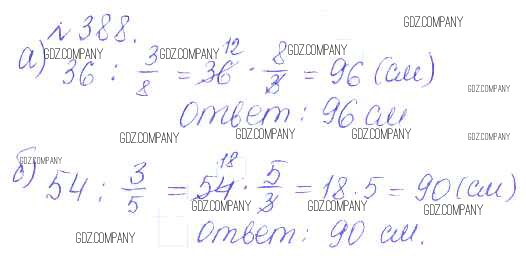 № 388.
GDZ.COMPANY
а) 36 : 3/8 = 36 12 · 8/3 = 96 (см)
GDZ.COMPANY GDZ.COMPANY GDZ.COMPANY
GDZ.COMPANY
Ответ: 96 см
GDZ.COMPANY GDZ.COMPANY GDZ.COMPANY GDZ.COMPANY
GDZ.COMPANY
б) 54 : 3/5 = 54 18 · 5/3 = 18 · 5 = 90 (см)
GDZ.COMPANY GDZ.COMPANY GDZ.COMPANY
GDZ.COMPANY
Ответ: 90 см.